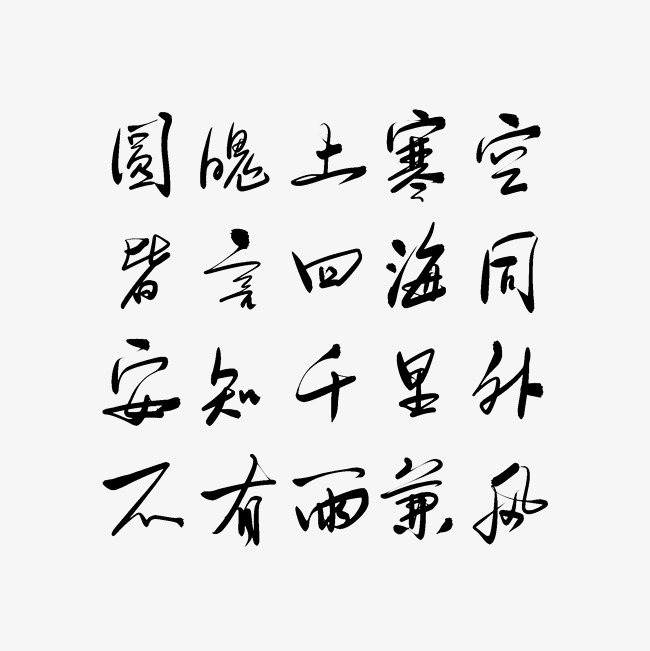 圆魄上寒空
皆言四海同
安知千里外
不有雨兼风